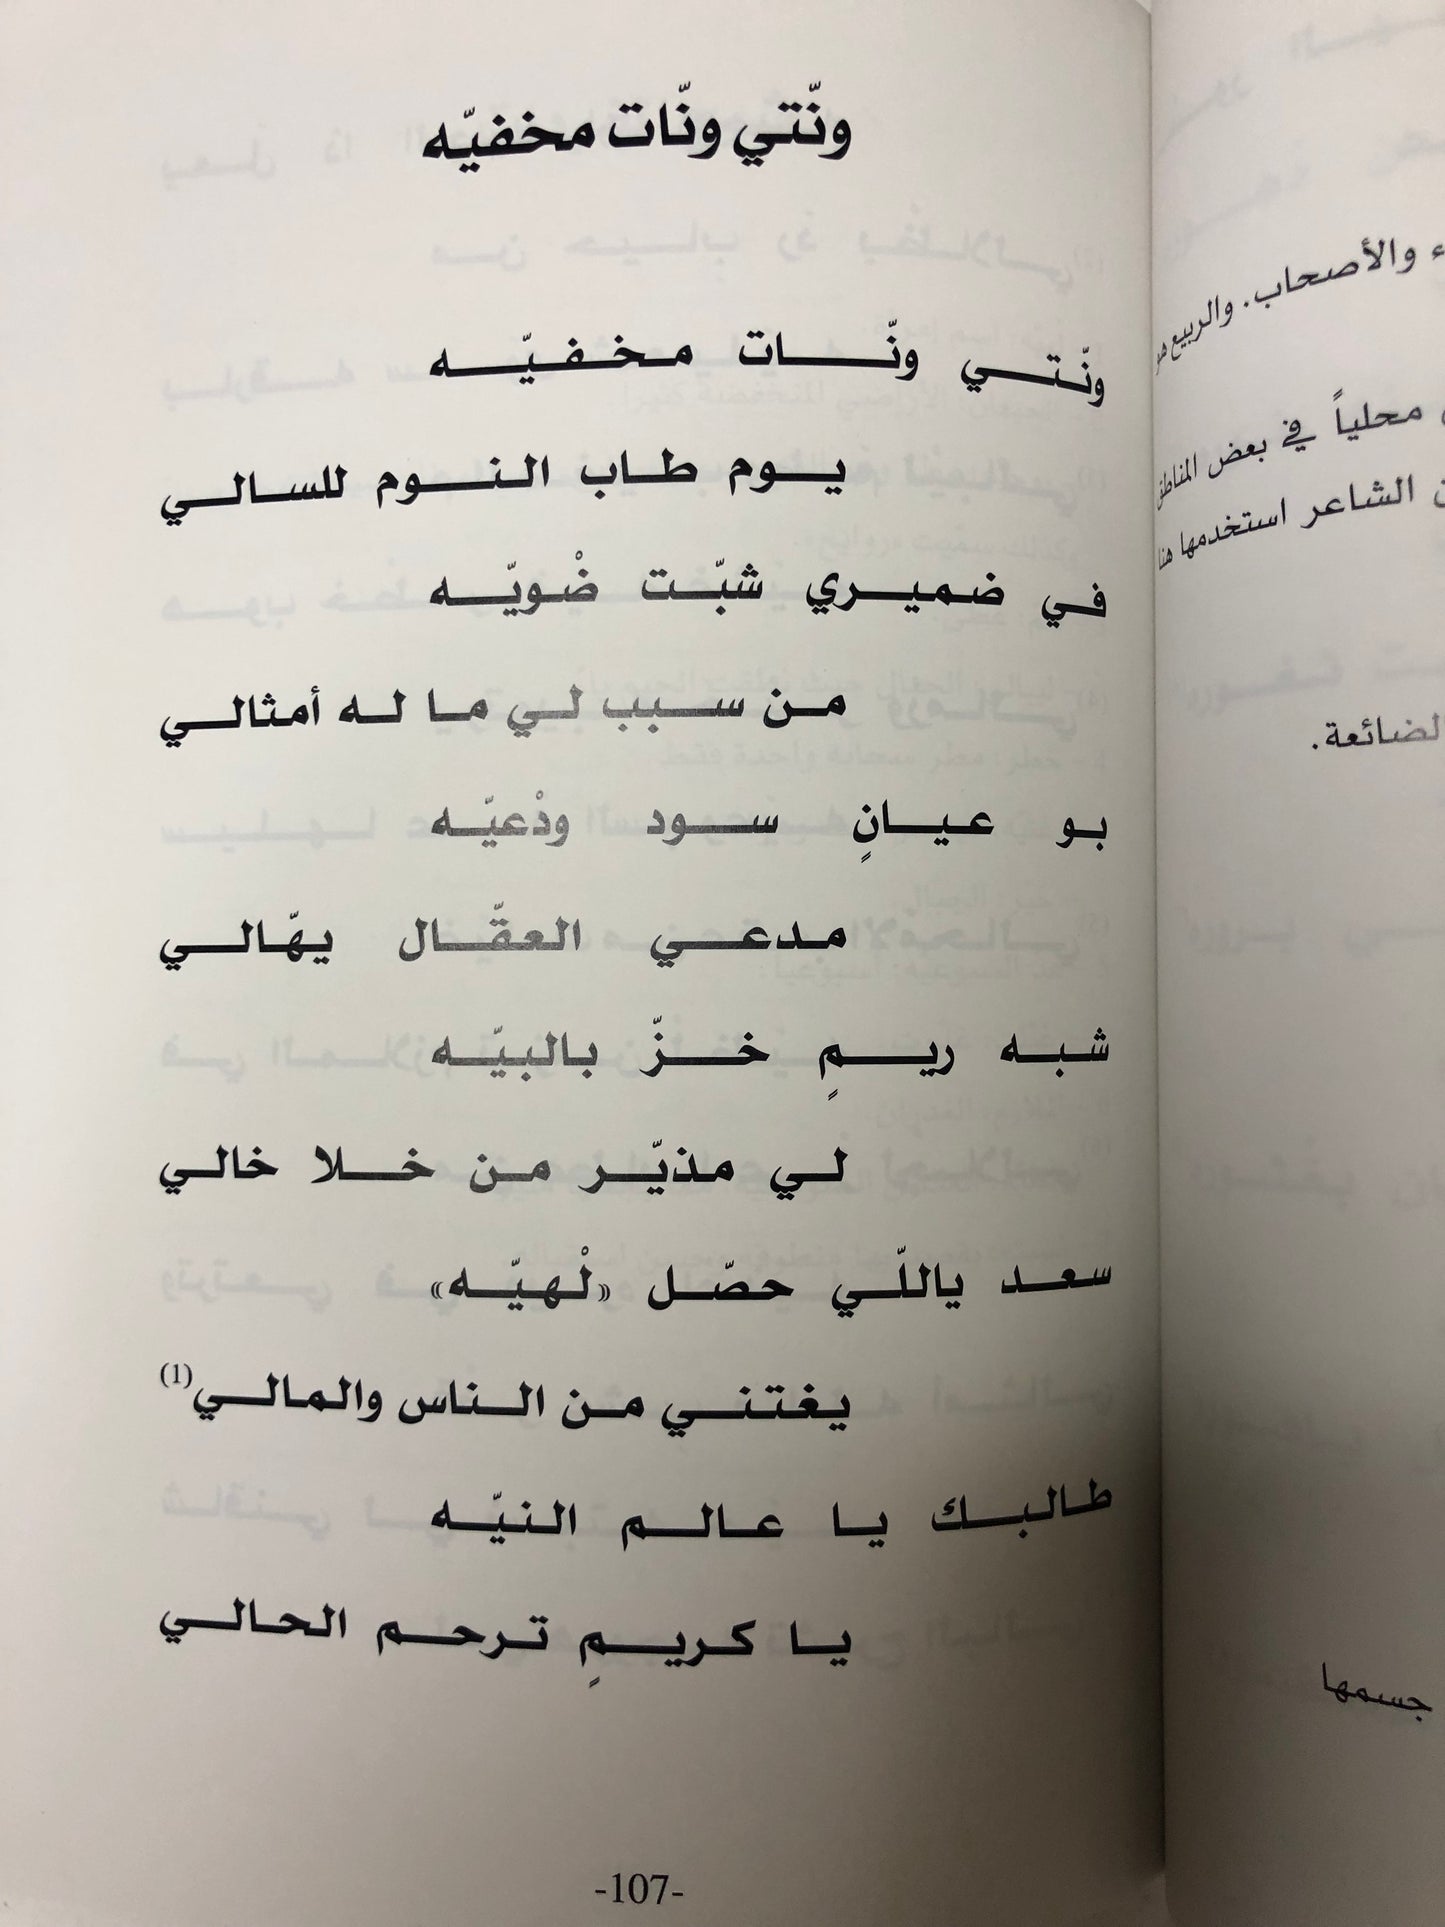 ونّتي ونّات مخفيّه
ونّتي ونّات مخفيّه
يوم طاب النوم للسالي
في ضميري شبّت ضْويّه
من سبب لي ما له أمثالي
بو عيانٍ سود ودْعيّه
مدعي العقّال يهّالي
شبه ريمٍ خزّ بالبيّه
لي مذيّر من خلا خالي
سعد ياللّي حصّل «لْهيّه»
يغتني من الناس والمالي(1)
طالبك يا عالم النيّه
يا كريمٍ ترحم الحالي
-107-
ء والأصحاب. والربيع هو
محلياً في بعض المناطق
ن الشاعر استخدمها هنا
لضائعة.
جسمها